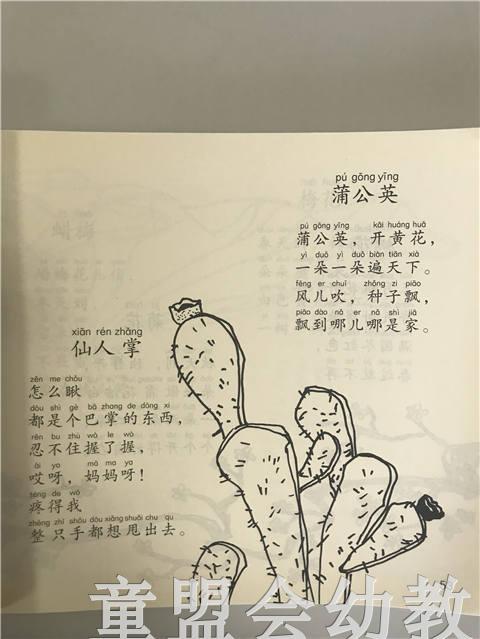 pú gōng yīng
蒲公英
pú gōng yīng kāi huáng huā
蒲公英，开黄花，
yì duǒ yì duǒ biàn tiān xià
一朵一朵遍天下。
fēng er chuī zhǒng zi piāo
风儿吹，种子飘，
piāo dào nǎ er nǎ shì jiā
飘到哪儿哪是家。
xiān rén zhǎng
仙人掌
zěn me chǒu
怎么瞅
dōu shì gè bā zhang de dōng xi
都是个巴掌的东西，
rěn bu zhù wò le wò
忍不住握了握，
āi yo mā ma ya
哎呀，妈妈呀！
téng de wǒ
疼得我
zhěng zhī shǒu dōu xiǎng shuǎi chu qu
整只手都想甩出去。
童盟会幼教